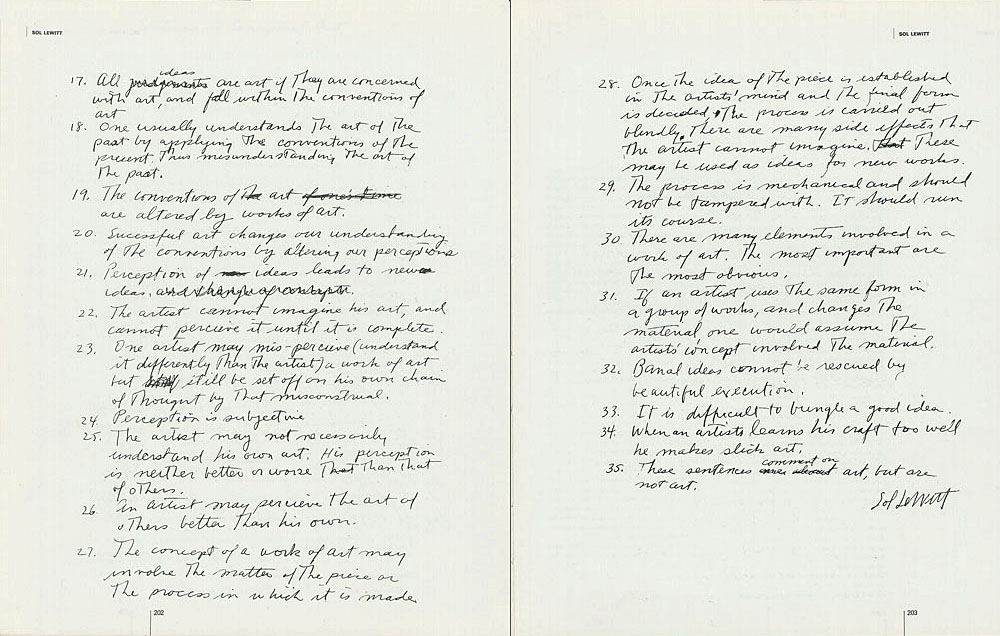 SOL LEWITT
17. All ideas are art if they are concerned
with art, and fall within the conventions of
art
18. One usually understands the art of the
past by applying the conventions of the
present, Thus misunderstanding the art of
the past.
19. The conventions of the art of one's time
are altered by works of art.
20. Sucessful art changes our understanding
of the conventions by altering our perceptions
21. Perception of new ideas leads to new
ideas.
22. The artist cannot imagine his art, and
cannot percieve it until it is complete.
23. One artist may mis-percieve (understand
it differently than the artist) a work of art
but still be set off on his own chain
of thought by that misconstrual.
24. Perception is subjective
25. The artist may not necessarily
understand his own art. His perception
is neither better or worse that than that
of others.
26. An artist may percieve the art of
others better than his own.
27. The concept of a work of art may
involve the matter of the piece or
the process in which it is made
202
SOL LEWITT
28. Once the idea of the piece is established
in the artists' mind and the final form
is decided, the process is carried out
blindly. There are many side effects that
the artist cannot imagine. These
may be used as ideas for new works.
29. The process is mechanical and should
not be tampered with. It should run
its course.
30. There are many elements involved in a
work of art. The most important are
the most obvious.
31. If an artist uses the same form in
a group of works, and changes the
material one would assume the
artists' concept involved the material.
32. Banal ideas cannot be rescued by
beautiful execution.
33. It is difficult to bungle a good idea.
34. When an artists learns his craft too well
he makes slick art.
35. These sentences comment on art, but are
not art.
Sol LeWitt
203